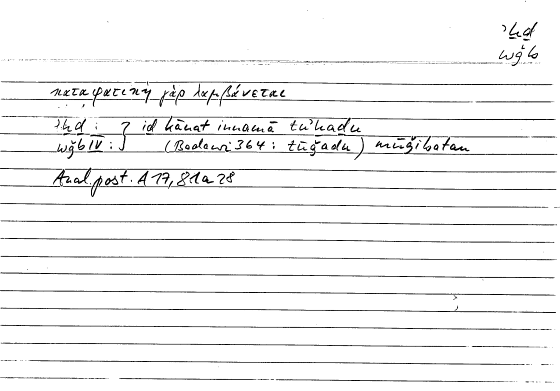 ʾḫḏ
wǧb
καταφατικὴ γὰρ λαμβάνεται
ʾḫḏ : } iḏ kānat innamā tuʾḫaḏu
wǧb IV : } (Badawī 364 : tūǧadu) mūǧibatan
Anal. post. A 17, 81a28